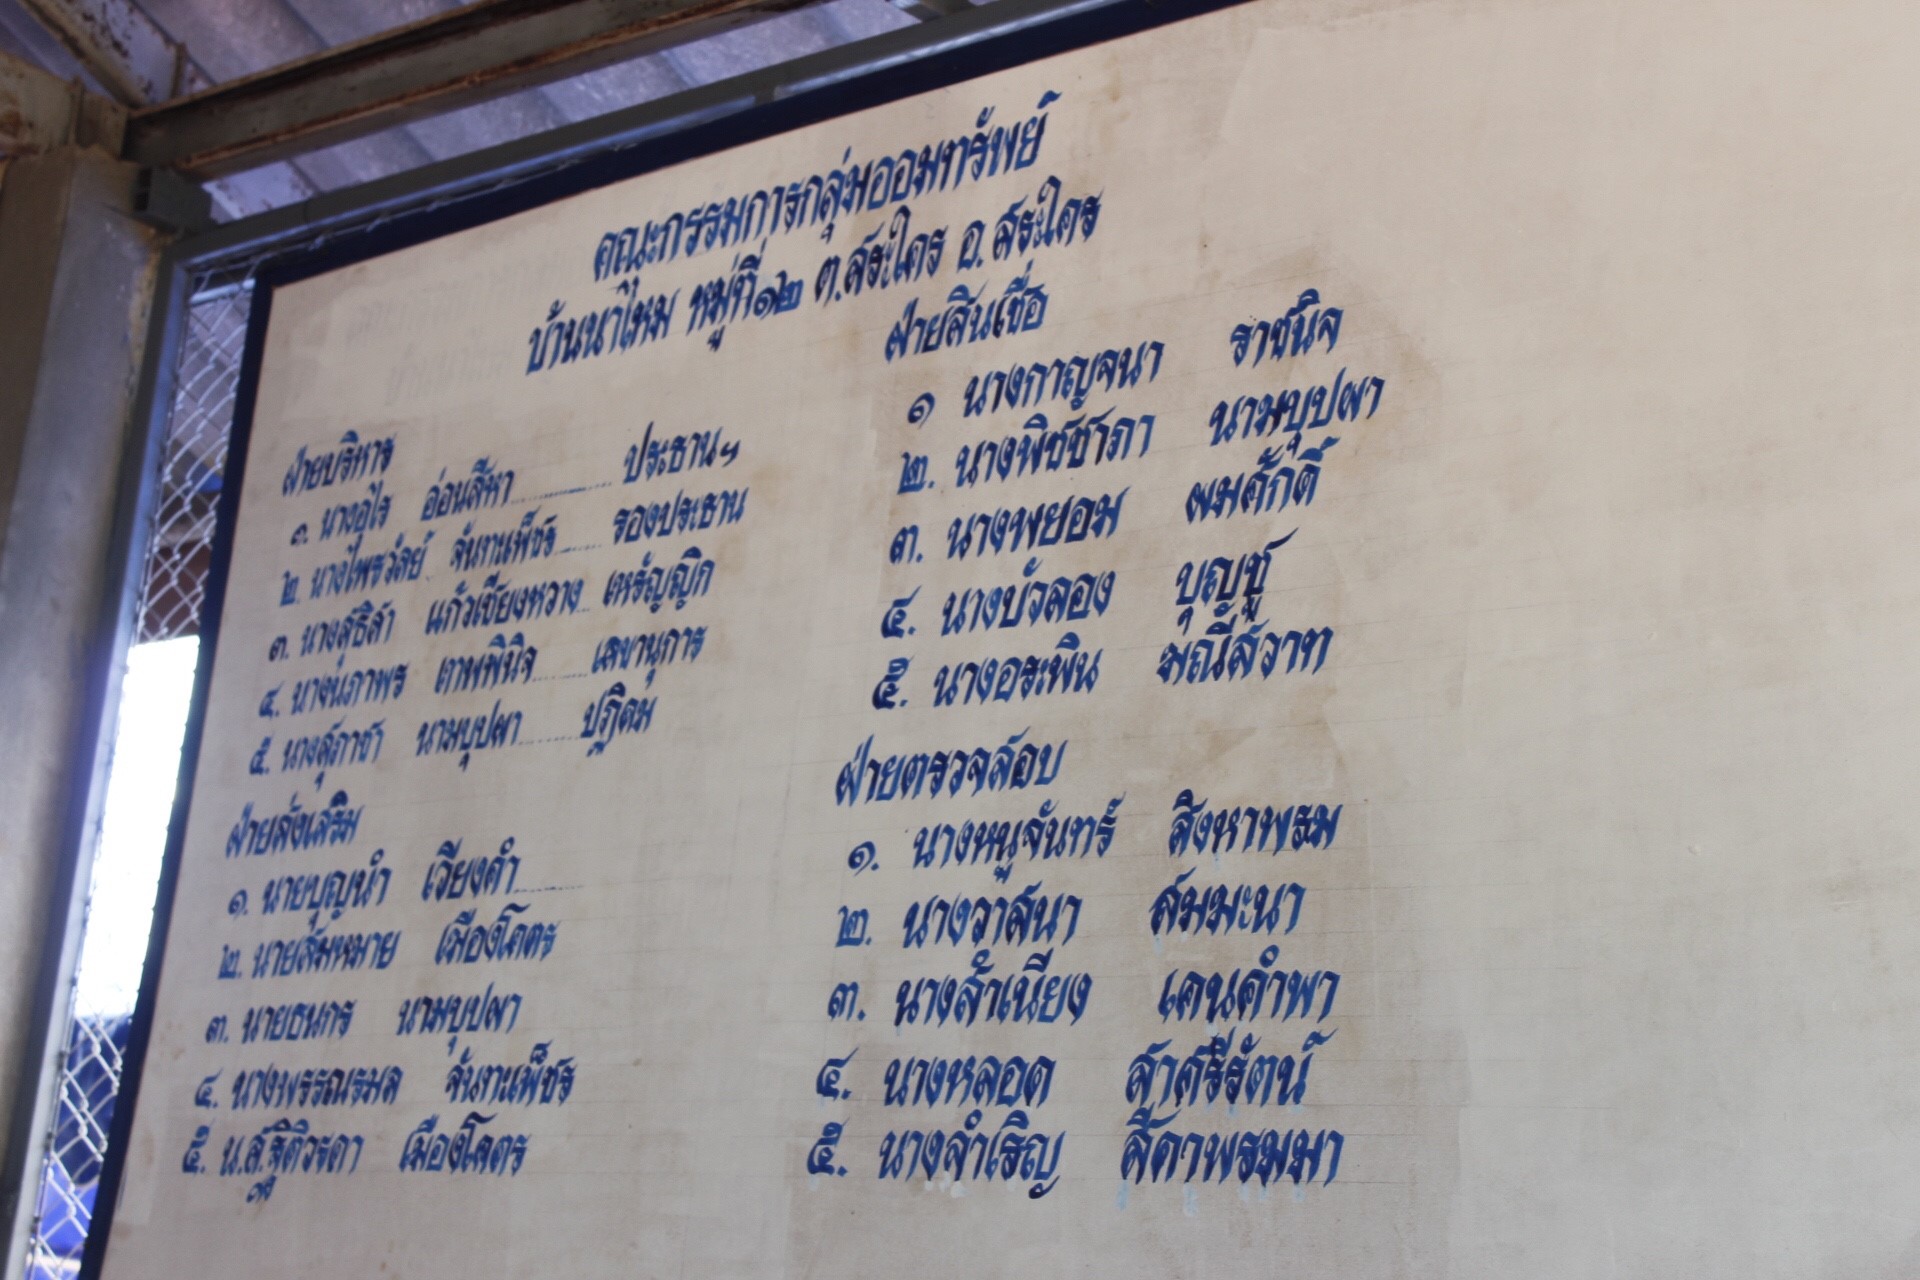 คณะกรรมการกลุ่มออมทรัพย์
บ้านนาไหม หมู่ที่๑๒ ต.สระใคร อ.สระใคร
ฝ่ายบริหาร
๑. นางอุไร อ่อนสีหา ประธานฯ
๒. นางไพรวัลย์ จันทะเพ็ชร รองประธาน
๓. นางสุธิสา แก้วเชียงหวาง เหรัญญิก
๔. นางนภาพร เทพพินิจ เลขานุการ
๕. นางสุภาชา นามบุปผา ปฏิคม
ฝ่ายส่งเสริม
๑. นายบุญนำ เวียงคำ
๒. นายสมหมาย เมืองโคตร
๓. นายธนกร นามบุปผา
๔. นางพรรณรมล จันทะเพ็ชร
๕. น.ส.ฐิติวรดา เมืองโคตร
ฝ่ายสินเชื่อ
๑ นางกาญจนา ราชนิจ
๒. นางพิชชาภา นามบุปผา
๓. นางพยอม ผมศักดิ์
๔. นางบัวลอง บุญชู
๕. นางอรพิน มณีสวาท
ฝ่ายตรวจสอบ
๑. นางหนูจันทร์ สิงหาพรม
๒. นางวาสนา สมมะนา
๓. นางสำเนียง เคนคำพา
๔. นางหลอด สาศรีรัตน์
๕. นางสำเริญ สีดาพรมมา